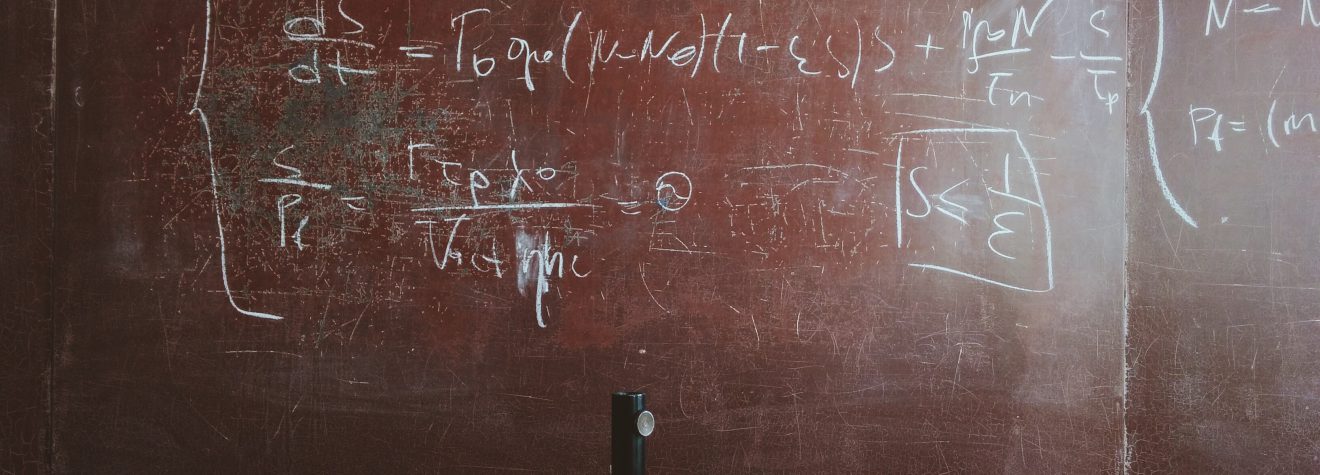 dS/dt = Γ₀ g₀(N-N₀)(1-εS)S + Γβ₀N/τₙ - S/τₚ
S/P_f = Γτₚλ₀/V_act ηhc = ②
S ≤ 1/ε
N =
P_f = (m